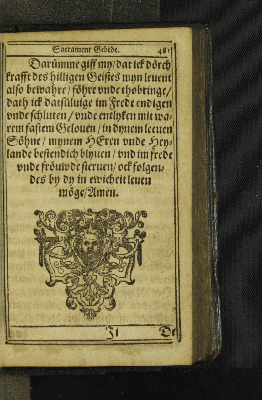 Sacrament Gebede. 481
Darümme giff my / dat ick dörch
krafft des hilligen Geistes myn leuent
also bewahre / föhre vnde thobringe /
dath ick datsüluige im Frede endigen
vnde schluten / vnde entlyken mit wa-
rem fastem Gelouen / in dynem leeuen
Söhne / mynem HEren vnde Hey-
lande bestendich blyuen / vnd im frede
vnde fröuwde steruen / ock folgen-
des by dy in ewicheit leuen
möge / Amen.
De